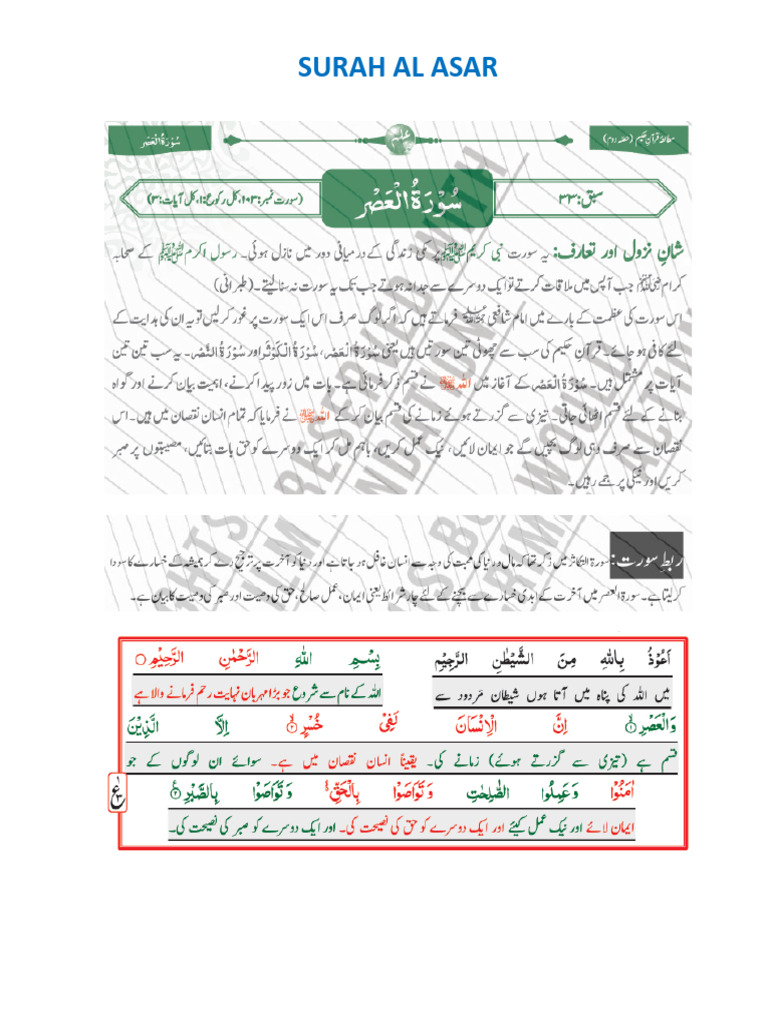 SURAH AL ASAR
مطالعۂ قرآنِ حکیم (حصّہ دوم)
سُوْرَةُ الْعَصْرِ
سبق: ۳۳
سُوْرَةُ الْعَصْرِ
(سورت نمبر: ۱۰۳، کل رکوع: ۱، کل آیات: ۳)
شانِ نزول اور تعارف: یہ سورت نبی کریم ﷺ پر مکی زندگی کے درمیانی دور میں نازل ہوئی۔ رسول اکرم ﷺ کے صحابہ
کرام جب آپس میں ملاقات کرتے تو ایک دوسرے سے جدا نہ ہوتے جب تک یہ سورت نہ سنا لیتے۔ (طبرانی)
اس سورت کی عظمت کے بارے میں امام شافعی فرماتے ہیں کہ اگر لوگ صرف اس ایک سورت پر غور کرلیں تو یہ ان کی ہدایت کے
لئے کافی ہوجائے۔ قرآنِ حکیم کی سب سے چھوٹی تین سورتیں ہیں یعنی سُوْرَةُ الْعَصْرِ، سُوْرَةُ الْكَوْثَرِ اور سُوْرَةُ النَّصْرِ۔ یہ سب تین تین
آیات پر مشتمل ہیں۔ سُوْرَةُ الْعَصْرِ کے آغاز میں اللہ نے قسم ذکر فرمائی ہے۔ بات میں زور پیدا کرنے، اہمیت بیان کرنے اور گواہ
بنانے کے لئے قسم اٹھائی جاتی۔ تیزی سے گزرتے ہوئے زمانے کی قسم بیان کرکے اللہ نے فرمایا کہ تمام انسان نقصان میں ہیں۔ اس
نقصان سے صرف وہی لوگ بچیں گے جو ایمان لائیں، نیک عمل کریں، باہم مل کر ایک دوسرے کو حق بات بتائیں، مصیبتوں پر صبر
کریں اور نیکی پر جمے رہیں۔
ربط سورت: سورۃ التکاثر میں ذکر تھا کہ مال و دنیا کی محبت کی وجہ سے انسان غافل ہوجاتا ہے اور دنیا کو آخرت پر ترجیح دے کر ہمیشہ کے خسارے کا سودا
کرلیتا ہے۔ سورۃ العصر میں آخرت کے ابدی خسارے سے بچنے کے لئے چار شرائط یعنی ایمان، عمل صالح، حق کی وصیت اور صبر کی وصیت کا بیان ہے۔
اَعُوْذُ بِاللّٰهِ مِنَ الشَّيْطٰنِ الرَّجِيْمِ بِسْمِ اللّٰهِ الرَّحْمٰنِ الرَّحِيْمِ
میں اللہ کی پناہ میں آتا ہوں شیطان مَردود سے اللہ کے نام سے شروع جو بڑا مہربان نہایت رحم فرمانے والا ہے
وَالْعَصْرِ ۙ۱ اِنَّ الْاِنْسَانَ لَفِيْ خُسْرٍ ۙ۲ اِلَّا الَّذِيْنَ
قسم ہے (تیزی سے گزرتے ہوئے) زمانے کی۔ یقیناً انسان نقصان میں ہے۔ سوائے ان لوگوں کے جو
اٰمَنُوْا وَعَمِلُوا الصّٰلِحٰتِ وَتَوَاصَوْا بِالْحَقِّ ۙ وَتَوَاصَوْا بِالصَّبْرِ ۳
ایمان لائے اور نیک عمل کیئے اور ایک دوسرے کو حق کی نصیحت کی۔ اور ایک دوسرے کو صبر کی نصیحت کی۔